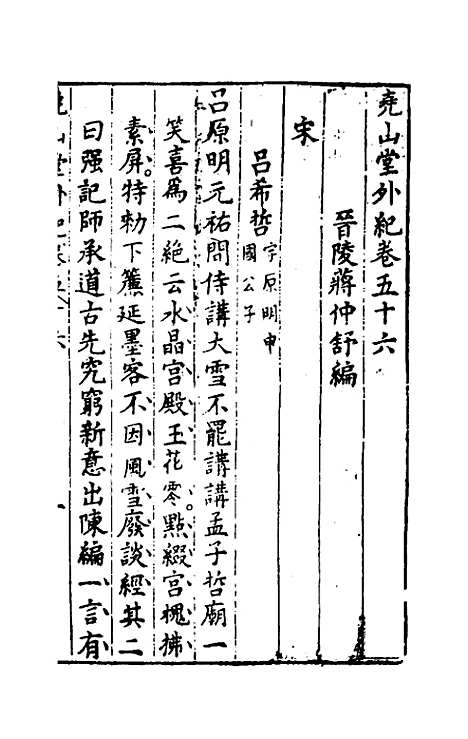 堯山堂外紀卷五十六
晉陵蔣仲舒編
宋
呂希哲字原明申
國公子
呂原明元祐間侍講大雪不罷講講孟子哲廟一
笑喜爲二絶云水晶宮殿玉花零點綴宮槐拂
素屏特勑下簾延墨客不因風雪廢談經其二
曰强記師承道古先究窮新意出陳編一言有
堯山堂外紀卷五十六
一